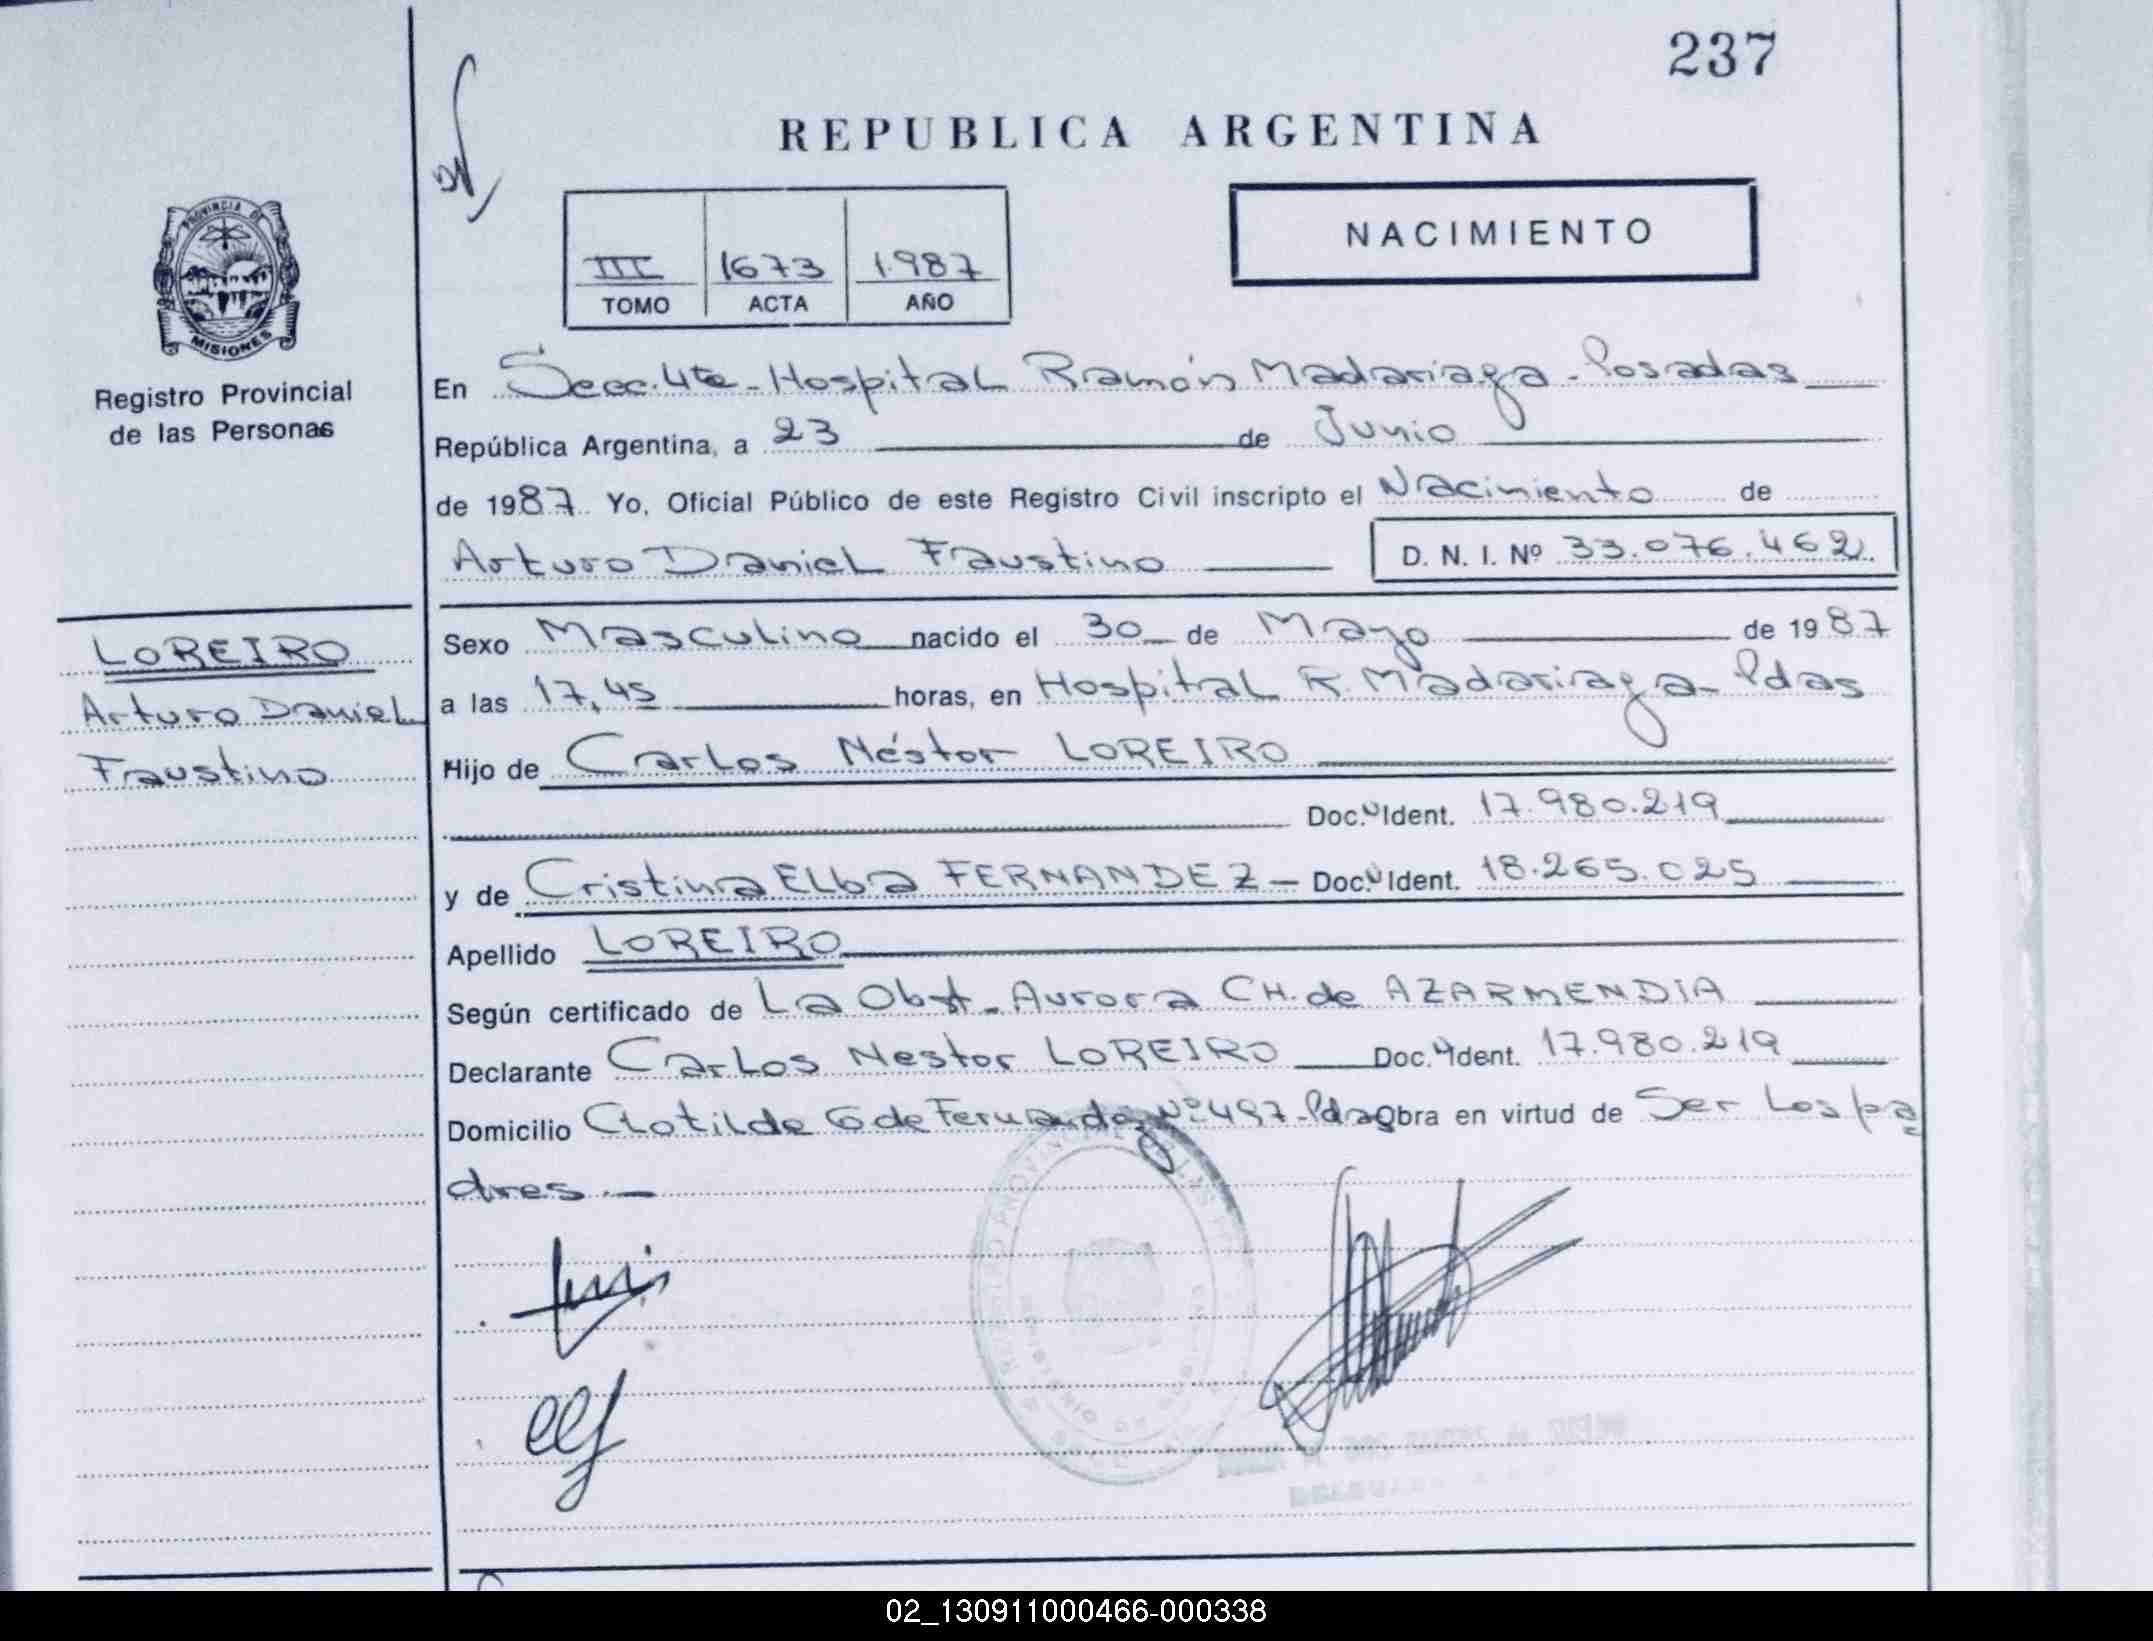 237
REPUBLICA ARGENTINA
NACIMIENTO
III 1673 1.987
TOMO ACTA AÑO
PROVINCIA DE
MISIONES
Registro Provincial
de las Personas
En Secc. 4ta - Hospital Ramón Madariaga - Posadas
República Argentina, a 23 de Junio
de 1987. Yo, Oficial Público de este Registro Civil inscripto el Nacimiento de
Arturo Daniel Faustino D. N. I. Nº 33.076.462
LOREIRO
Arturo Daniel
Faustino
Sexo Masculino nacido el 30 de Mayo de 1987
a las 17,45 horas, en Hospital R. Madariaga - Pdas
Hijo de Carlos Néstor LOREIRO
Doc. Ident. 17.980.219
y de Cristina Elba FERNANDEZ - Doc. Ident. 18.265.025
Apellido LOREIRO
Según certificado de La Obst. Aurora CH. de AZARMENDIA
Declarante Carlos Nestor LOREIRO Doc. Ident. 17.980.219
Domicilio Clotilde G de Fernandez Nº 497 - Pdas Obra en virtud de Ser Los pa
dres.-
02_130911000466-000338